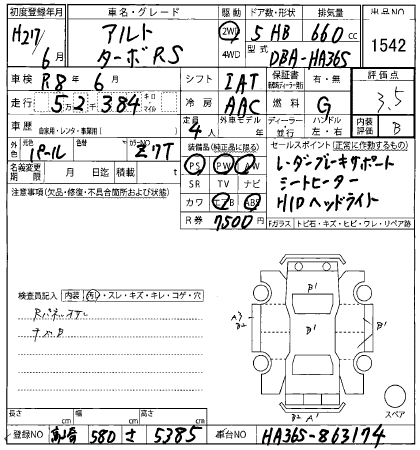 初度登録年月 車名・グレード 駆動 ドア数・形状 排気量 出品NO
H27/6月 アルト ターボRS 2WD 4WD 5 HB 660cc 1542
型式 DBA-HA36S
車検 R8年6月 シフト IAT 保証書 有・無 評価点 3.5
走行 52千384 キロ・マイル 冷房 AAC 燃料 G
車歴 自家用・レンタ・事業用( ) 定員 4人 外車モデル 年 ディーラー・並行 ハンドル 左・右 内装評価 B
外色 元色 パール カラーNO Z7T 装備品(純正品に限る) セールスポイント(正常に作動するもの)
名義変更期限 月 日迄 積載 t PS PW AW レーダーブレーキサポート
注意事項(欠品・修復・不具合箇所および状態) SR TV ナビ シートヒーター
カワ エアB ABS HIDヘッドライト
R券 7500円 Fガラス トビ石・キズ・ヒビ・ワレ・リペア跡
検査員記入 内装 汚レ・スレ・キズ・キレ・コゲ・穴
B'
A3
B2
B'
B'
B2 A'
スペア
長さ cm 幅 cm 高さ cm
登録NO 580 さ 5385 車台NO HA36S-863174